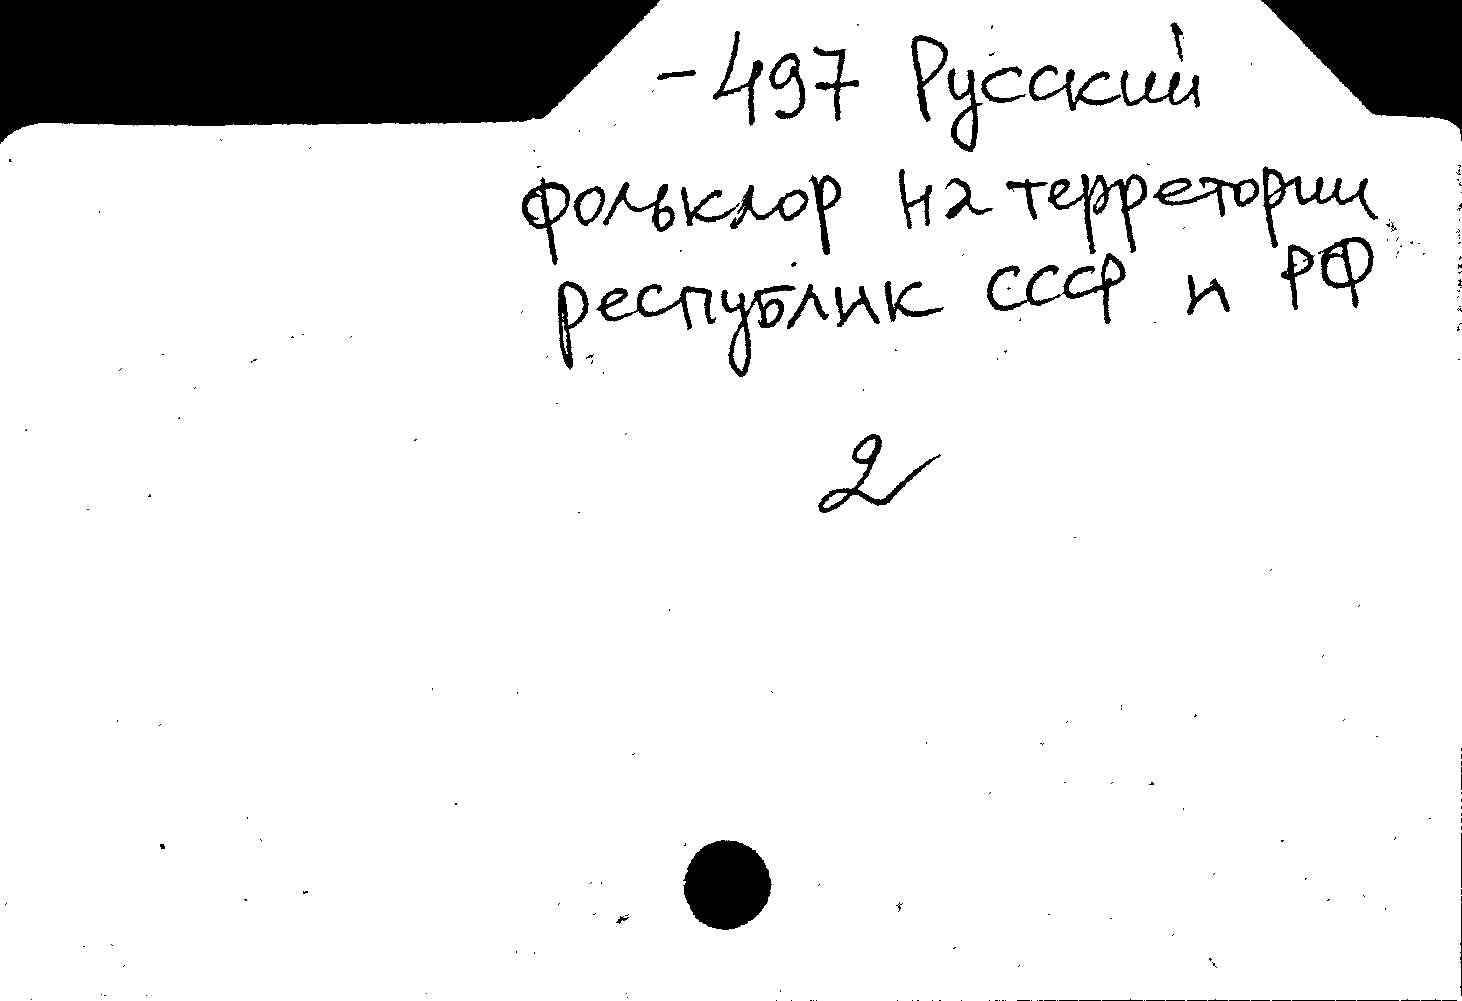 -497 Русский
фольклор на терретории
республик СССР и РФ
2